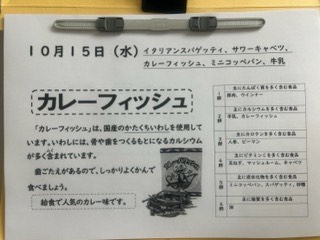 10月15日（水）イタリアンスパゲッティ、サワーキャベツ、
カレーフィッシュ、ミニコッペパン、牛乳
カレーフィッシュ
「カレーフィッシュ」は、国産のかたくちいわしを使用して
います。いわしには、骨や歯をつくるもとになるカルシウム
が多く含まれています。
歯ごたえがあるので、しっかりよくかんで
食べましょう。
給食で人気のカレー味です。
1群 主にたんぱく質を多く含む食品
豚肉、ウインナー
2群 主にカルシウムを多く含む食品
牛乳、カレーフィッシュ
3群 主にカロテンを多く含む食品
人参、ピーマン
4群 主にビタミンCを多く含む食品
玉ねぎ、マッシュルーム、キャベツ
5群 主に炭水化物を多く含む食品
ミニコッペパン、スパゲティ、砂糖
6群 主に脂質を多く含む食品
油